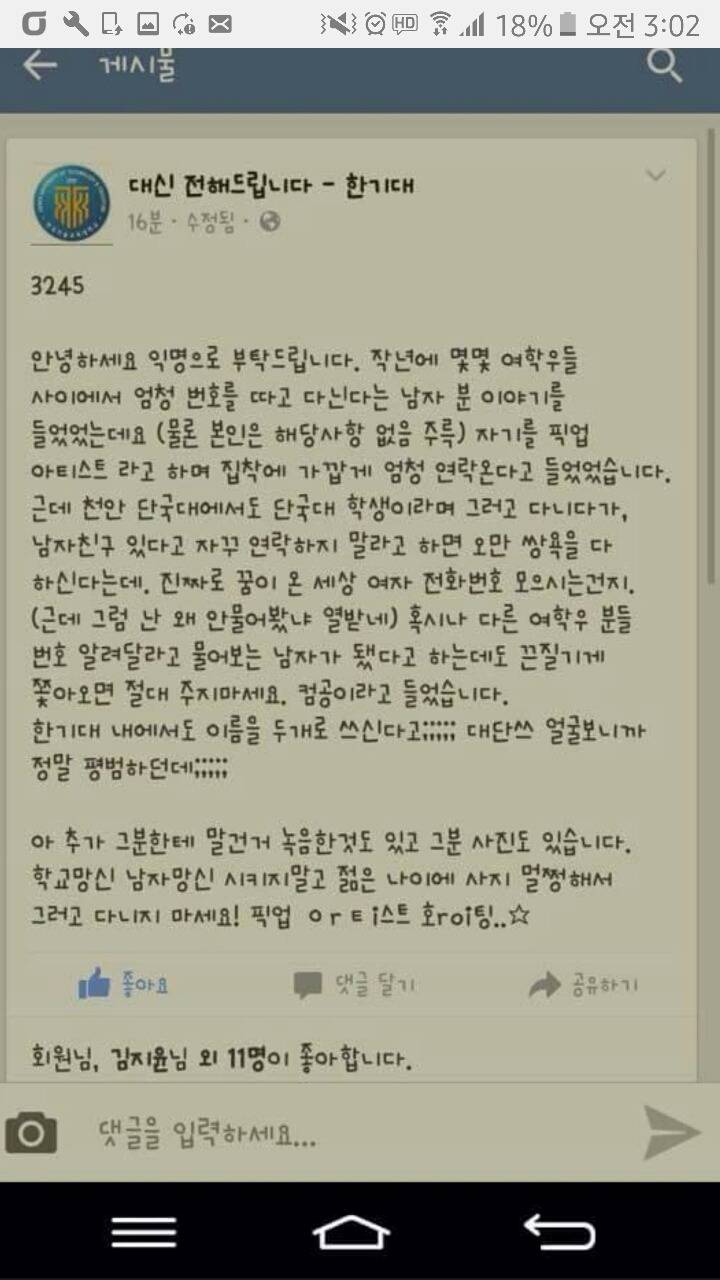 18% 오전 3:02
게시물
대신 전해드립니다 - 한기대
16분 · 수정됨 ·
3245
안녕하세요 익명으로 부탁드립니다. 작년에 몇몇 여학우들
사이에서 엄청 번호를 따고 다닌다는 남자 분 이야기를
들었었는데요 (물론 본인은 해당사항 없음 주륵) 자기를 픽업
아티스트 라고 하며 집착에 가깝게 엄청 연락온다고 들었었습니다.
근데 천안 단국대에서도 단국대 학생이라며 그러고 다니다가,
남자친구 있다고 자꾸 연락하지 말라고 하면 오만 쌍욕을 다
하신다는데. 진짜로 꿈이 온 세상 여자 전화번호 모으시는건지.
(근데 그럼 난 왜 안물어봤냐 열받네) 혹시나 다른 여학우 분들
번호 알려달라고 물어보는 남자가 됐다고 하는데도 끈질기게
쫓아오면 절대 주지마세요. 컴공이라고 들었습니다.
한기대 내에서도 이름을 두개로 쓰신다고;;;;; 대단쓰 얼굴보니까
정말 평범하던데;;;;;
아 추가 그분한테 말건거 녹음한것도 있고 그분 사진도 있습니다.
학교망신 남자망신 시키지말고 젊은 나이에 사지 멀쩡해서
그러고 다니지 마세요! 픽업 ㅇrㅌi스트 호roi팅..☆
좋아요
댓글 달기
공유하기
회원님, 김지윤님 외 11명이 좋아합니다.
댓글을 입력하세요...